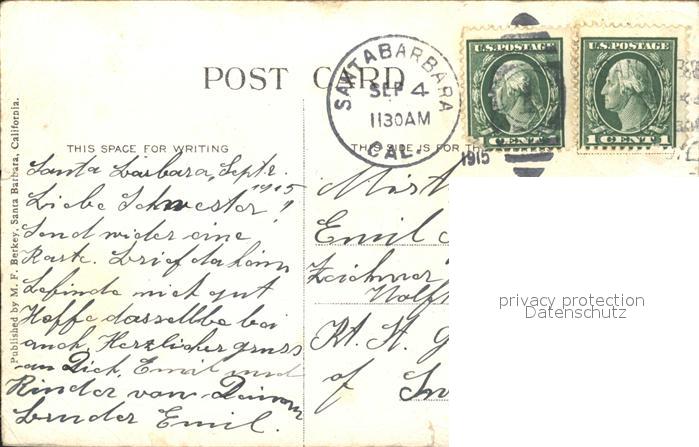 POST CARD
SANTA BARBARA
SEP 4
1130AM
CAL.
1915
U.S. POSTAGE
1 CENT 1
U.S. POSTAGE
1 CENT 1
THIS SPACE FOR WRITING
THIS SIDE IS FOR THE
Published by M. F. Berkey, Santa Barbara, California.
Santa Barbara, Sept 2.
1915
Liebe Schwester!
Send wider eine
Karte. Brief daheim
befinde mich gut
Hoffe dasselbe bei
auch. Herzlicher gruss
an Dich, Emil und
Kinder von Deinem
Bruder Emil.
Emil
Zeichner
Kt. St. G
of
privacy protection
Datenschutz